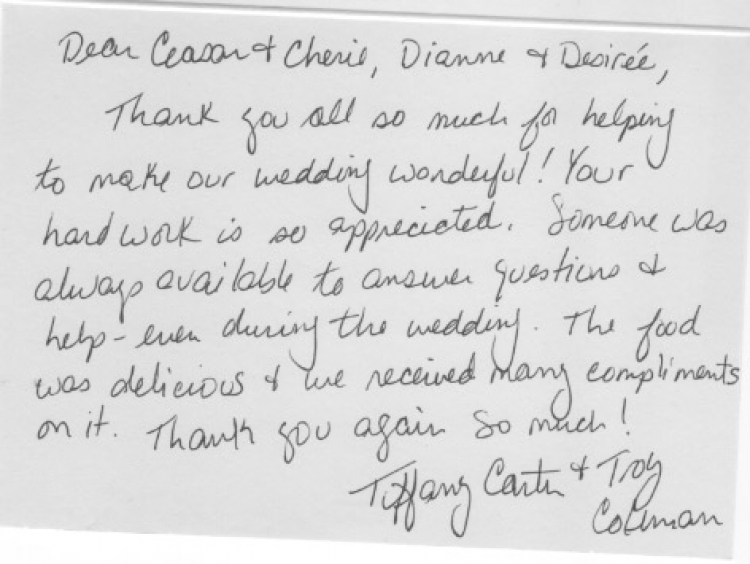 Dear Ceasar & Cherie, Dianne & Desirée,
Thank you all so much for helping
to make our wedding wonderful! Your
hard work is so appreciated. Someone was
always available to answer questions &
help - even during the wedding. The food
was delicious & we received many compliments
on it. Thank you again so much!
Tiffany Carter & Troy
Coleman